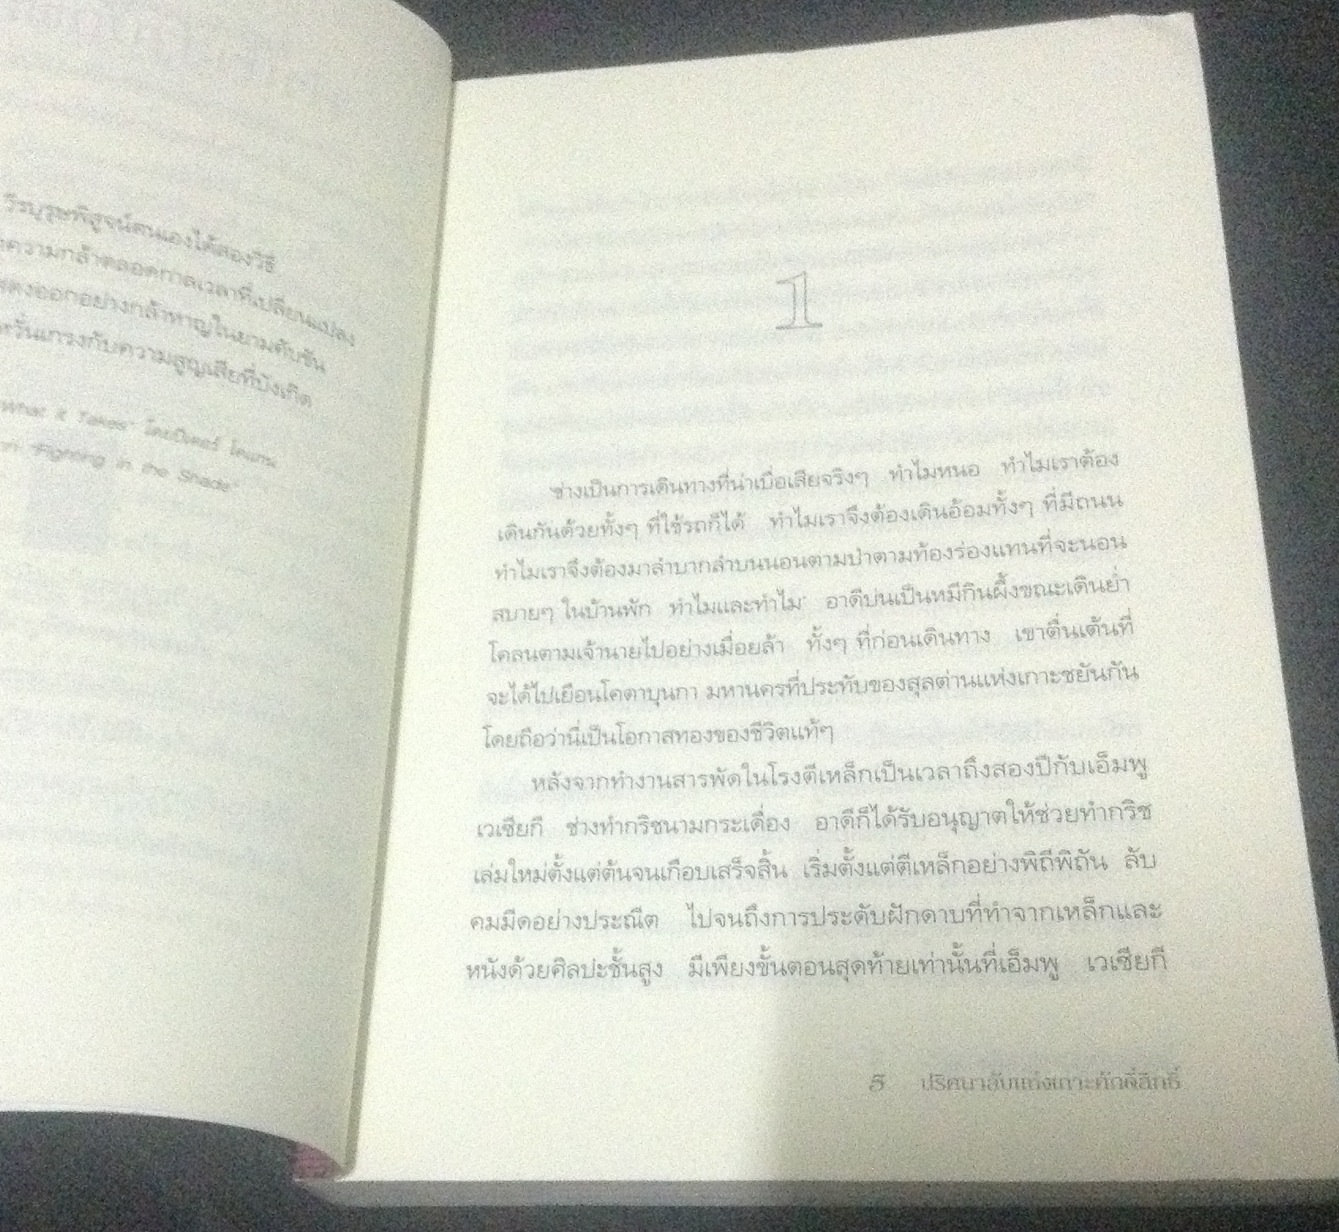 วีรบุรุษพิสูจน์ตนเองได้สองวิธี
ความกล้าตลอดกาลเวลาที่เปลี่ยนแปลง
แสดงออกอย่างกล้าหาญในยามคับขัน
หวั่นเกรงกับความสูญเสียที่บังเกิด
What it Takes" โดยปีเตอร์ โคแกน
"Fighting in the Shade"
1
ช่างเป็นการเดินทางที่น่าเบื่อเสียจริงๆ ทำไมหนอ ทำไมเราต้อง
เดินกันด้วยทั้งๆ ที่ใช้รถก็ได้ ทำไมเราจึงต้องเดินอ้อมทั้งๆ ที่มีถนน
ทำไมเราจึงต้องมาลำบากลำบนนอนตามป่าตามท้องร่องแทนที่จะนอน
สบายๆ ในบ้านพัก ทำไมและทำไม อาดีบ่นเป็นหมีกินผึ้งขณะเดินย่ำ
โคลนตามเจ้านายไปอย่างเมื่อยล้า ทั้งๆ ที่ก่อนเดินทาง เขาตื่นเต้นที่
จะได้ไปเยือนโคตาบุนกา มหานครที่ประทับของสุลต่านแห่งเกาะซยันกัน
โดยถือว่านี่เป็นโอกาสทองของชีวิตแท้ๆ
หลังจากทำงานสารพัดในโรงตีเหล็กเป็นเวลาถึงสองปีกับเอ็มพู
เวเซียกี ช่างทำกริชนามกระเดื่อง อาดีก็ได้รับอนุญาตให้ช่วยทำกริช
เล่มใหม่ตั้งแต่ต้นจนเกือบเสร็จสิ้น เริ่มตั้งแต่ตีเหล็กอย่างพิถีพิถัน ลับ
คมมีดอย่างประณีต ไปจนถึงการประดับฝักดาบที่ทำจากเหล็กและ
หนังด้วยศิลปะชั้นสูง มีเพียงขั้นตอนสุดท้ายเท่านั้นที่เอ็มพู เวเซียกี
5 ปริศนาลับแห่งเกาะศักดิ์สิทธิ์